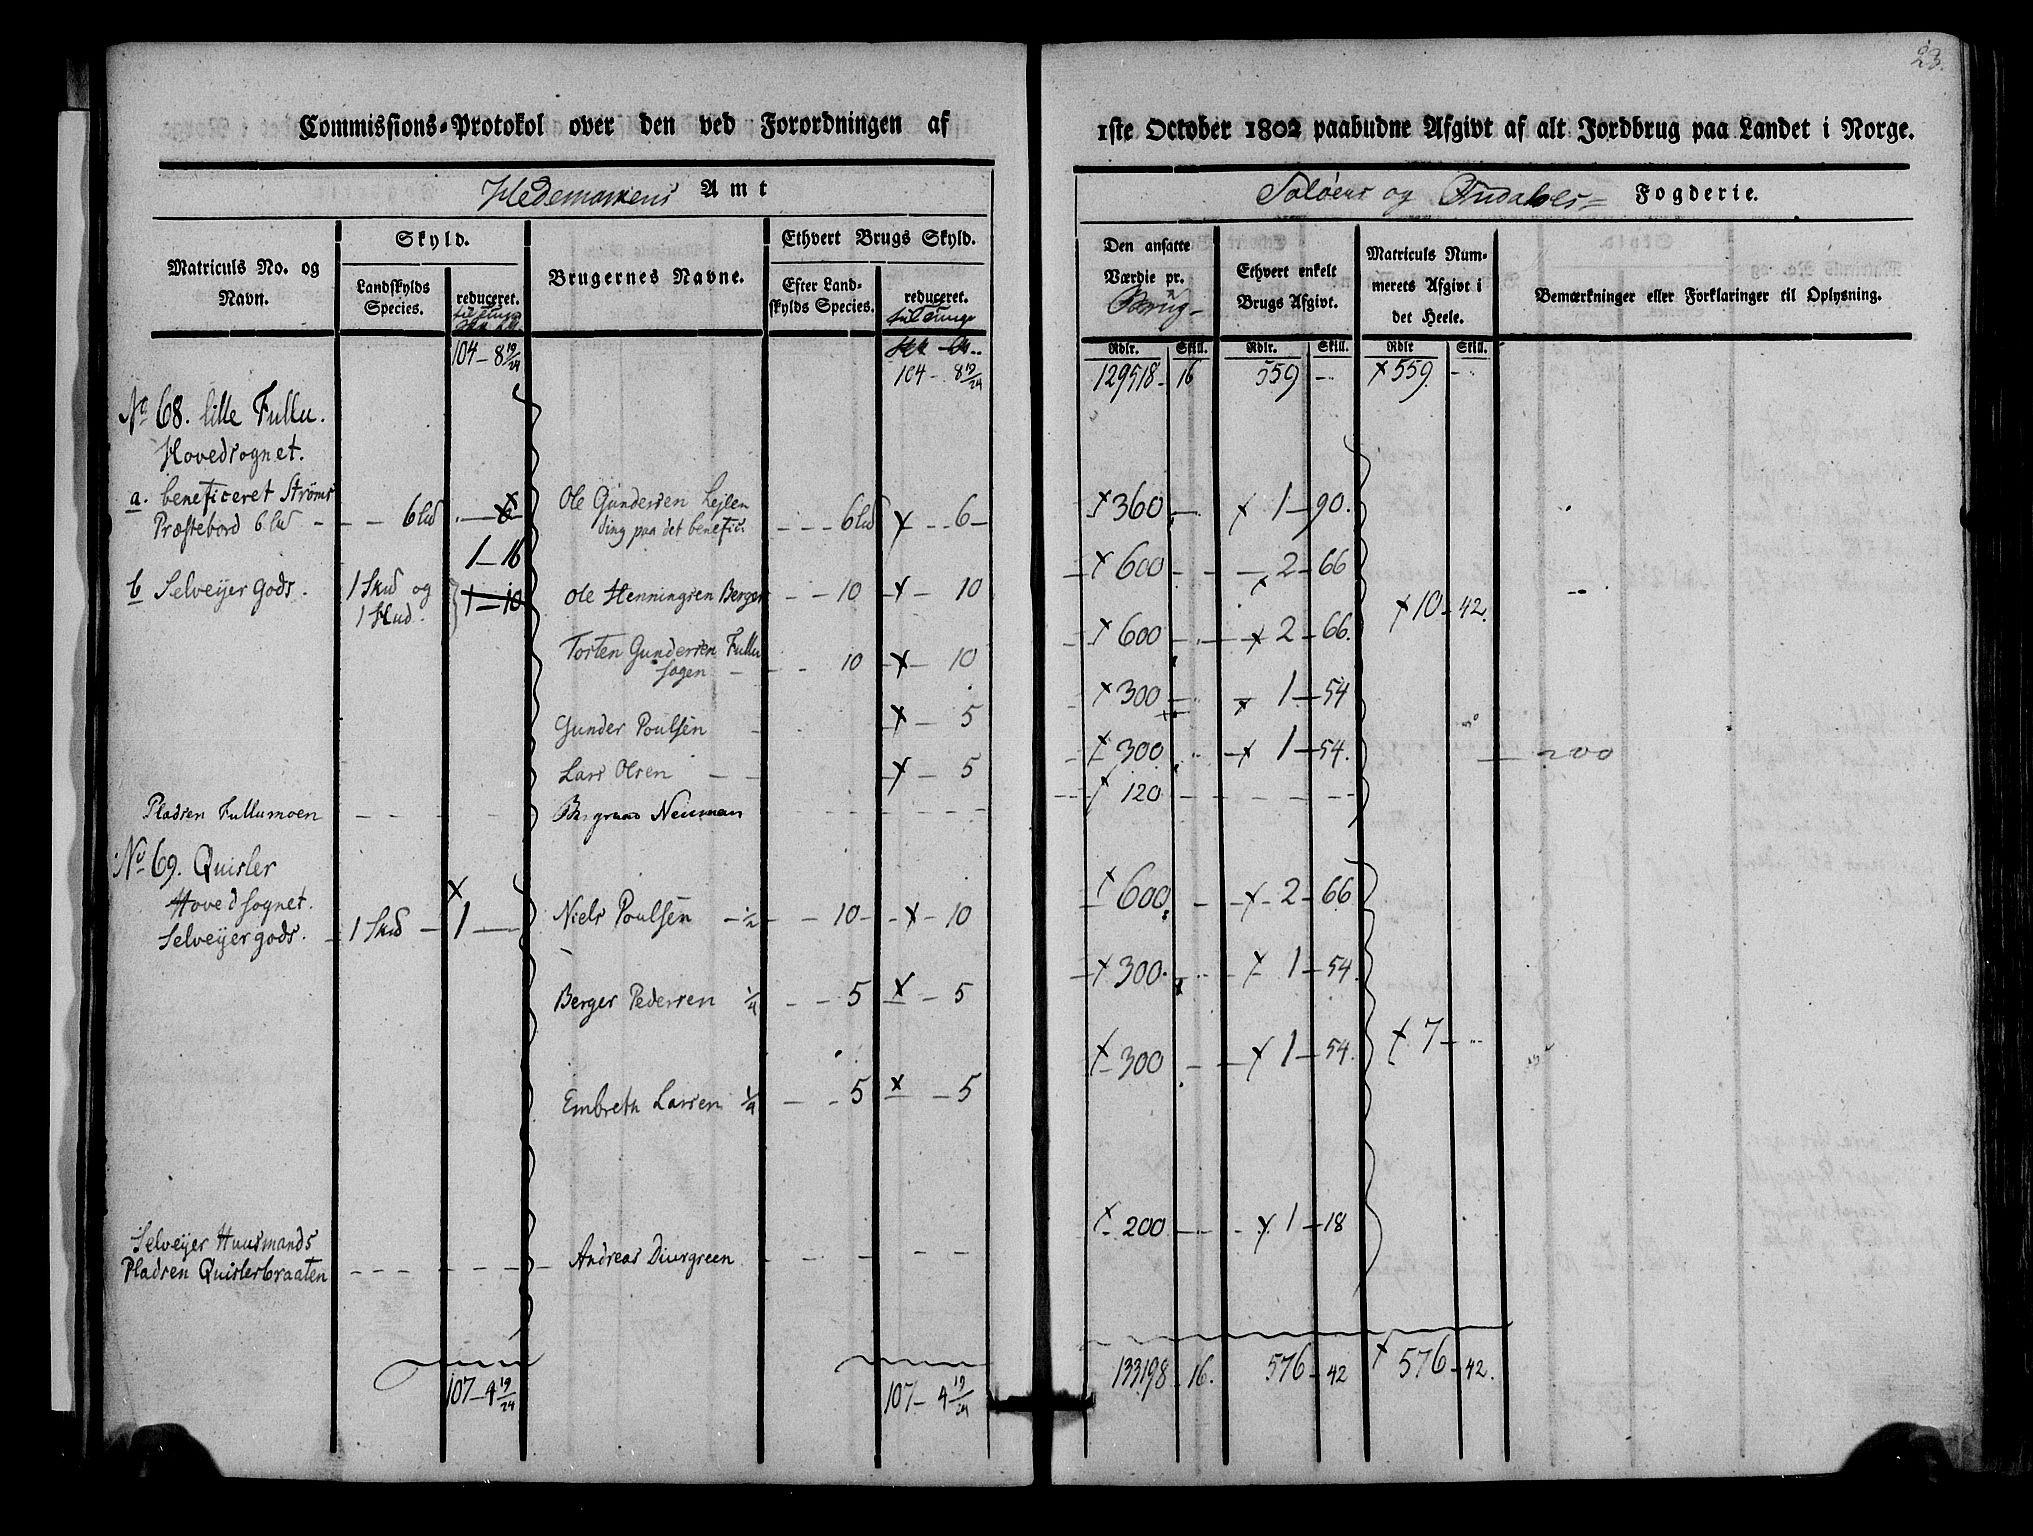 23.
Commissions-Protokol over den ved Forordningen af
1ste October 1802 paabudne Afgivt af alt Jordbrug paa Landet i Norge.
Hedemarkens Amt
Soløers og Fogderie.
Matriculs No. og Navn.
Skyld.
Landskylds Species.
reduceret.
Brugernes Navne.
Ethvert Brugs Skyld.
Efter Landskylds Species.
reduceret.
til Tunge
Den ansatte Værdie pr. Brug
Ethvert enkelt Brugs Afgivt.
Matriculs Nummerets Afgivt i det Heele.
Bemærkninger eller Forklaringer til Oplysning.
Rdlr. Skill. Rdlr. Skill. Rdlr Skill.
104 – 8 19/24 104 – 8 19/24 129518 – 16 559 – x 559 –
No 68. lille Fullu.
Hovedsognet.
a. beneficeret Strøms
Præstebord 6 lid – 6 lid – 6 Ole Gundersen Lejlen
ding paa det benefic: – 6 lid x – 6 – x 360 – x 1 – 90.
1 – 16
b Selveijer gods. 1 Skid og 1 Hud. 1 – 10 Ole Henningsen Berger – 10 – x – 10 x 600 – x 2 – 66
x 10 – 42.
Torsten Gundersen Fullu
hagen – 10 – x – 10 x 600 – x 2 – 66.
Gunder Poulsen – x – 5 x 300 – x 1 – 54
Lars Olsen – x – 5 x 300 – x 1 – 54. 200
Pladsen Fullumoen – Neuman x 120
No 69. Quisler
Hovedsognet.
Selveijer gods. – 1 Skid – x 1 – Niels Poulsen – 1/2 – 10 – x – 10 x 600 – x 2 – 66
Berger Pedersen 1/4 – 5 x – 5 x 300. – x 1 – 54
x 7 –
Embreth Larsen 1/4 – 5 x – 5 x 300 – x 1 – 54.
Selveijer Huusmands
Pladsen Quislerbraaten – Andreas Diurgreen x 200 – x 1 – 18
107 – 4 19/24 107 – 4 19/24 133198 – 16. 576 – 42 x 576 – 42.